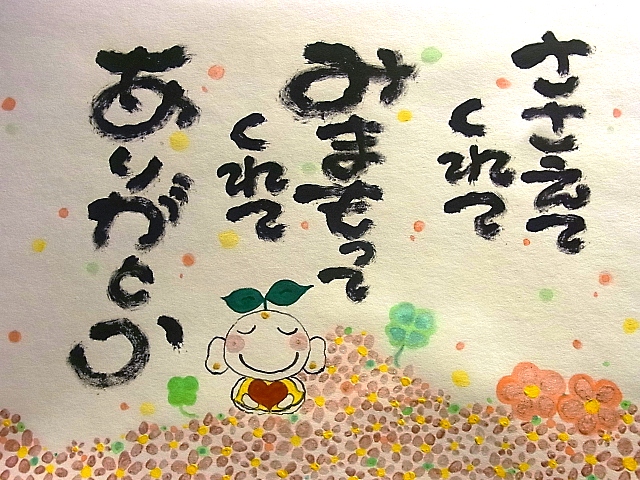 ささえて
くれて
みまもって
くれて
ありがとう